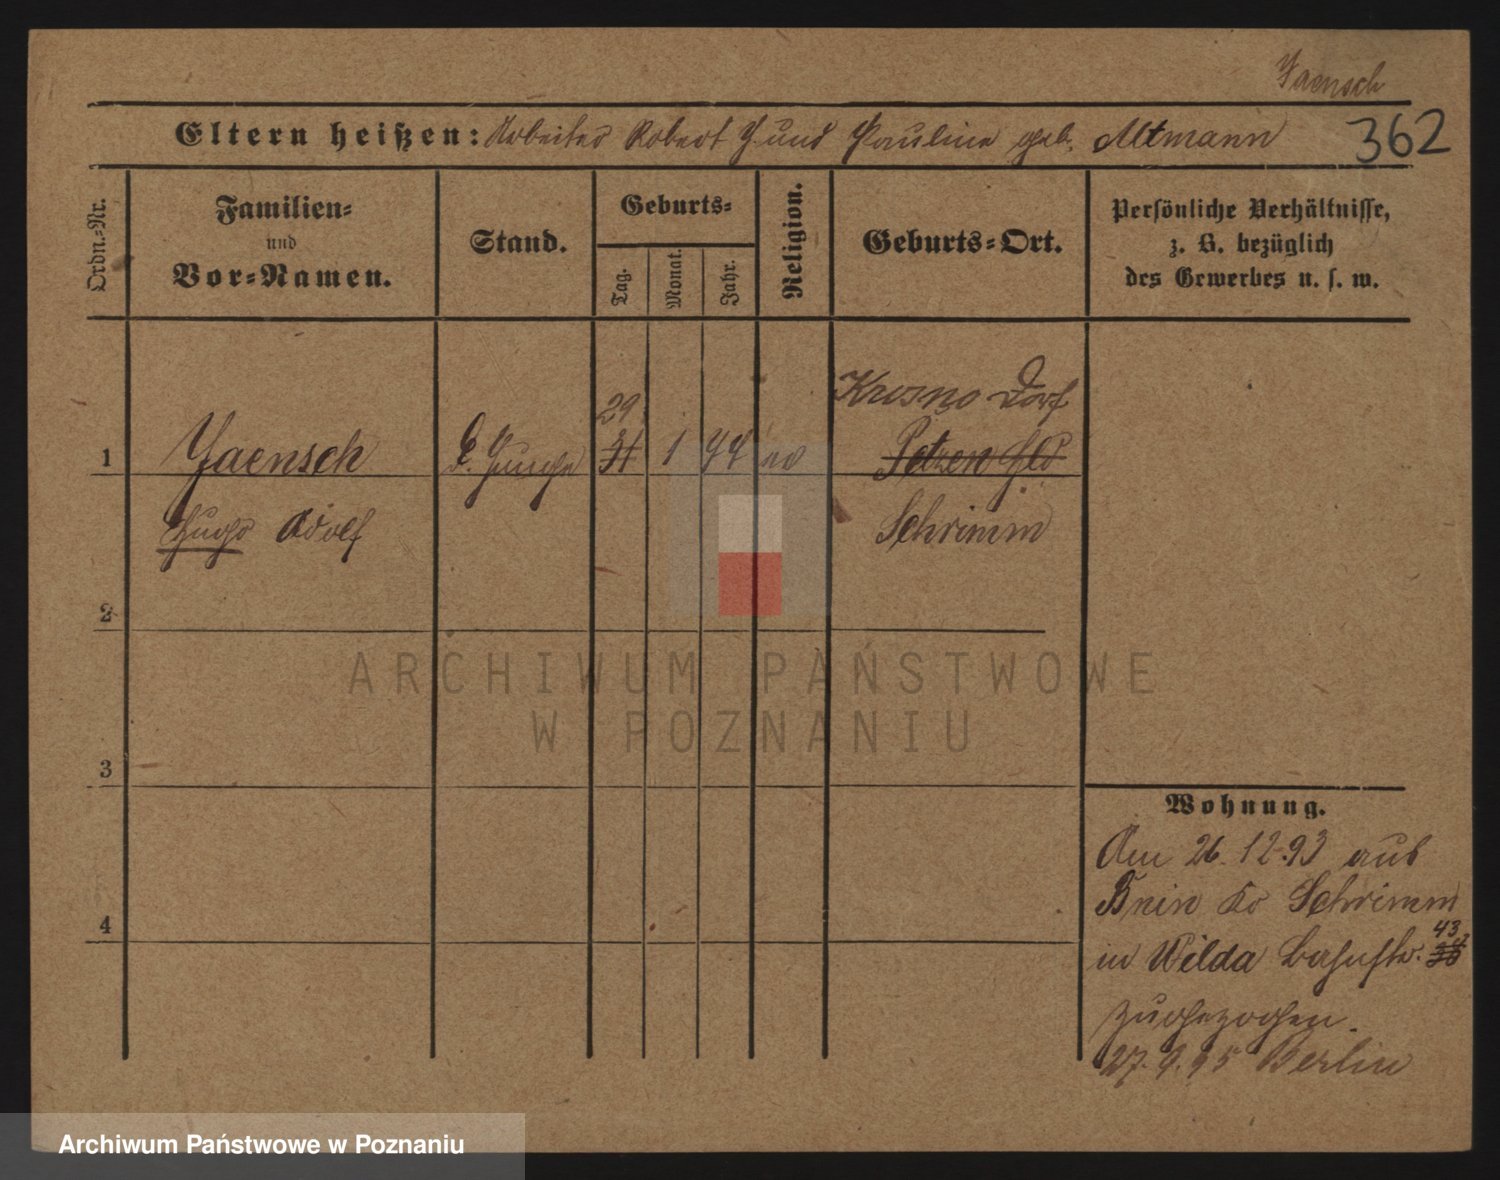 Jaensch
Eltern heißen: Arbeiter Robert J. und Pauline geb. Altmann
362
Ordn.-Nr.
Familien-
und
Vor-Namen.
Stand.
Geburts-
Tag.
Monat.
Jahr.
Religion.
Geburts-Ort.
Persönliche Verhältnisse,
z. B. bezüglich
des Gewerbes u. s. w.
Krosno Dorf
29
1
Jaensch
31
1
74
Schrimm
Hugo Adolf
2
3
4
Wohnung.
Am 26.12.93 aus
Bnin Kr Schrimm
43
in Wilda Bahnstr.
zugezogen.
27.9.95 Berlin
ARCHIWUM PAŃSTWOWE
W POZNANIU
Archiwum Państwowe w Poznaniu